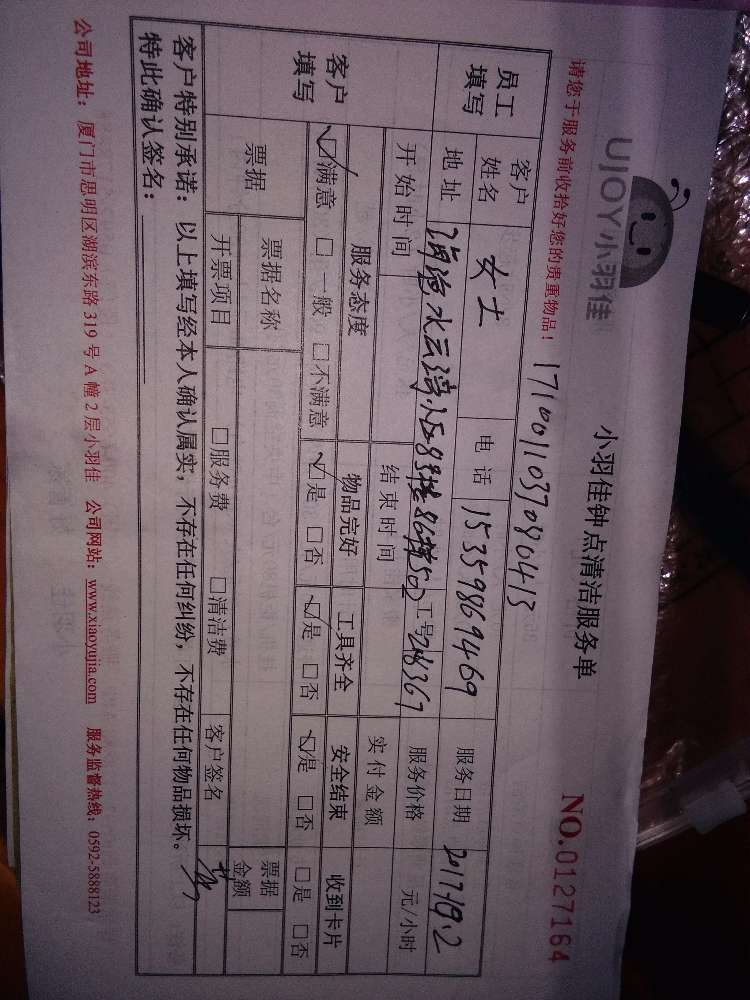 UJOY小羽佳
小羽佳钟点清洁服务单
NO.0127164
请您于服务前收拾好您的贵重物品！
1710011037080413
员工填写
客户姓名 女士 电话 15359869469 服务日期 2017.10.2
地址 水云湾 502 工号 218367 服务价格 元/小时
开始时间 结束时间 实付金额
客户填写
服务态度 物品完好 工具齐全 安全结束 收到卡片
☑满意 □一般 □不满意 ☑是 □否 ☑是 □否 ☑是 □否 □是 □否
票据 票据名称 票据金额
开票项目 □服务费 □清洁费 客户签名
客户特别承诺：以上填写经本人确认属实，不存在任何纠纷，不存在任何物品损坏。
特此确认签名：
公司地址：厦门市思明区湖滨东路 319 号 A 幢 2 层小羽佳 公司网站：www.xiaoyujia.com 服务监督热线：0592-5888123